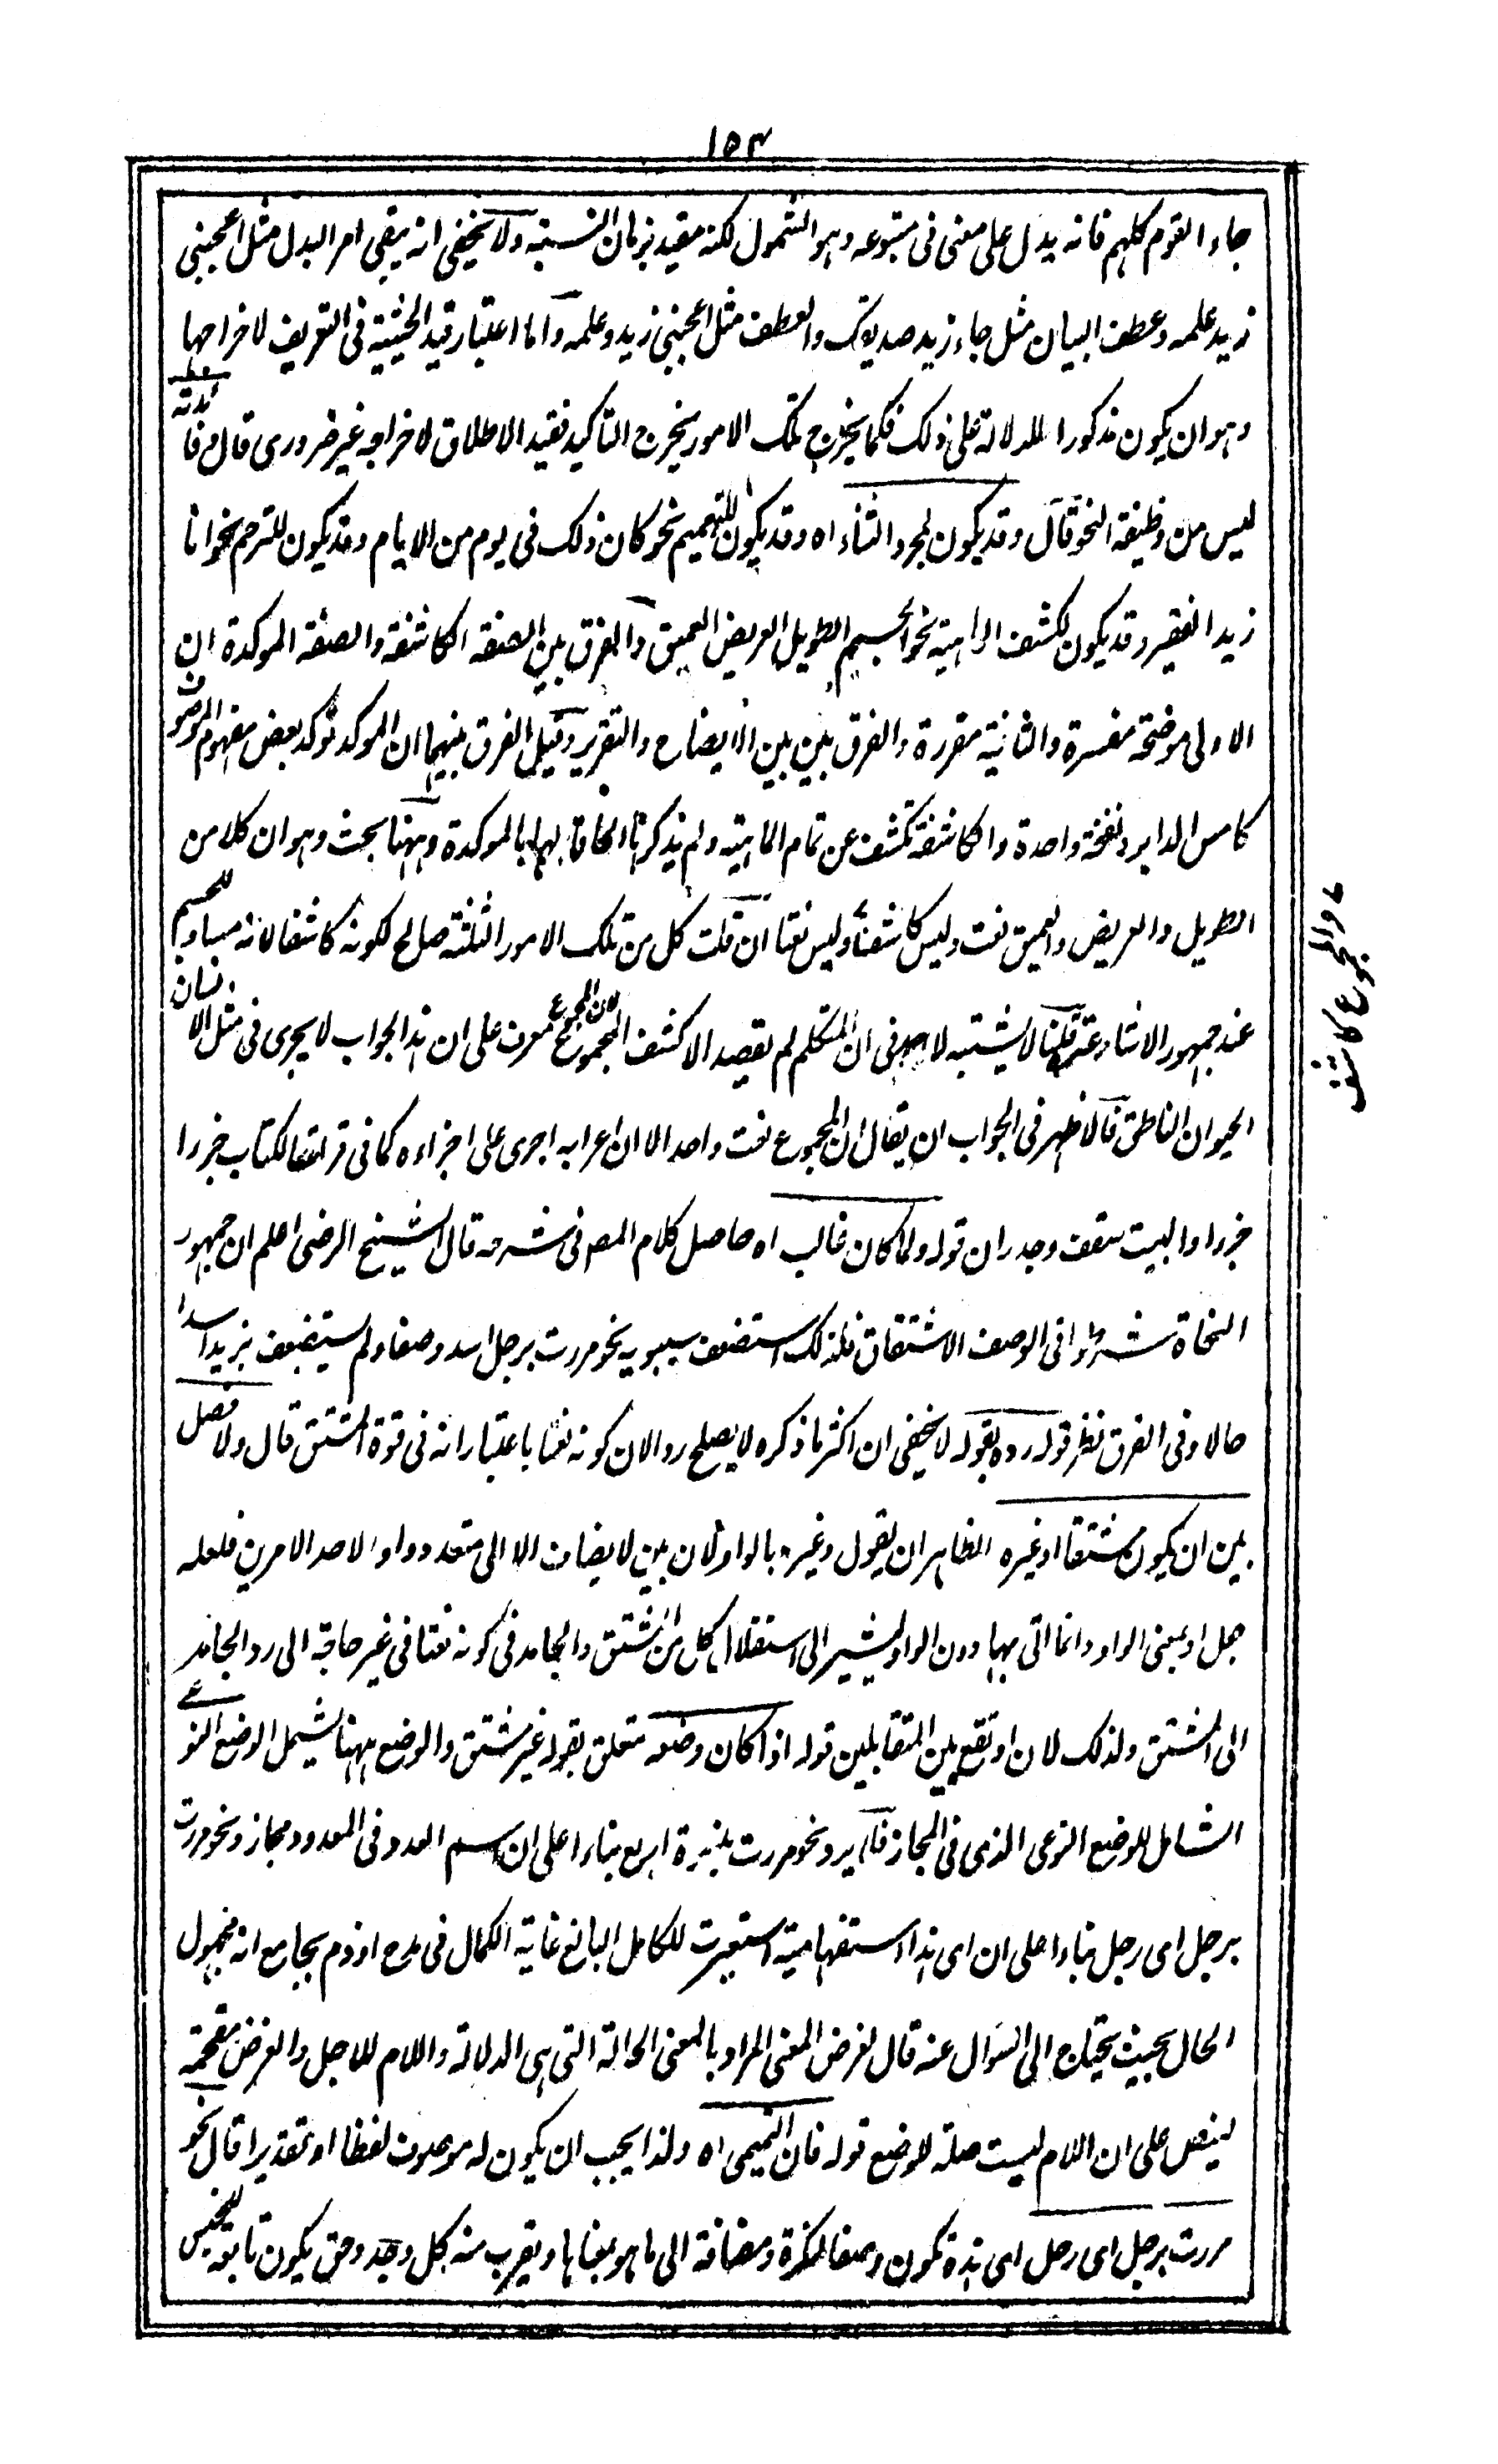 ١٥٣
جاء القوم كلهم فانه يدل على معنى فى متبوعه وهو الشمول لكنه مقيد بزمان النسبة ولا يخفى انه يبقى امر البدل مثل اعجبنى
زيد علمه وعطف البيان مثل جاء زيد صديقك والعطف مثل اعجبنى زيد وعلمه واما اعتبار قيد الحيثية فى التعريف لاخراجها
وهو ان يكون مذكورا للدلالة على ذلك فكما يخرج تلك الامور يخرج التاكيد فقيد الاطلاق لاخراجه غير ضرورى قال وفائدته
ليس من وظيفة النحو قال وقد يكون لمجرد الثناء اه وقد يكون للتعميم نحو كان ذلك فى يوم من الايام وقد يكون للترحم نحو انا
زيد الفقير وقد يكون لكشف الماهية نحو الجسم الطويل العريض العميق والفرق بين الصفة الكاشفة والصفة الموكدة ان
الاولى موضحة مفسرة والثانية مقررة والفرق بين بين الايضاح والتقرير وقيل الفرق بينهما ان الموكد توكد بعض مفهوم الموصوف
كامس الدابر ونفخة واحدة والكاشفة تكشف عن تمام الماهية ولم يذكرها الحاقا لها بالموكدة وههنا بحث وهو ان كلا من
الطويل والعريض والعميق نعت وليس كاشفا وليس نعتا ان قلت كل من تلك الامور الثلثة صالح لكونه كاشفا لانه مساو للجسم
والمجموع كاشف
عند جمهور الاشاعرة قلنا لا يشتبه لاحد فى ان المتكلم لم يقصد الا كشف المجموع لان المجموع معرف على ان هذا الجواب لا يجرى فى مثل الانسان
الحيوان الناطق فالاظهر فى الجواب ان يقال ان المجموع نعت واحد الا ان اعرابه اجرى على اجزاءه كما فى قرأت الكتاب جزرا
جزرا والبيت سقف وجدران قوله ولما كان غالب اه حاصل كلام المص فى شرحه قال الشيخ الرضى اعلم ان جمهور
النحاة شرطوا فى الوصف الاشتقاق فلذلك استضعف سيبويه نحو مررت برجل اسد وصفا ولم يستضعف بزيد اسدا
حالا وفى الفرق نظر قوله رده بقوله لا يخفى ان اكثر ما ذكره لا يصلح ردا لان كونه نعتا باعتبار انه فى قوة المشتق قال ولا فصل
بين ان يكون مشتقا او غيره الظاهر ان يقول وغيره بالواو لان بين لا يضاف الا الى متعدد واو لاحد الامرين فلعله
جعل او بمعنى الواو وانما اتى بها دون الواو ليشير الى استقلال كل من المشتق والجامد فى كونه نعتا فى غير حاجة الى رد الجامد
الى المشتق ولذلك لان او تقع بين المتقابلين قوله اذا كان وضعه متعلق بقوله غير مشتق والوضع ههنا يشمل الوضع النوعى
الشامل للوضع النوعى الذى فى المجاز فلا يرد نحو مررت بنسوة اربع بناء على ان اسم العدد فى المعدود مجاز ونحو مررت
برجل اى رجل بناء على ان اى هذا استفهامية استعيرت للكامل البالغ غاية الكمال فى مدح او ذم بجامع انه مجهول
الحال بحيث يحتاج الى السؤال عنه قال لغرض المعنى المراد بالمعنى الحالة التى هى الدلالة واللام للاجل والغرض مقحمة
لينص على ان اللام ليست صلة لاوضع قوله فان التميمى اه ولذا يجب ان يكون له موصوف لفظا او تقديرا قال نحو
مررت برجل اى رجل اى هذه تكون وصفا لنكرة ومضافة الى ما هو بمعناها ويقرب منه كل وجد وحق يكون تابعة للجنس